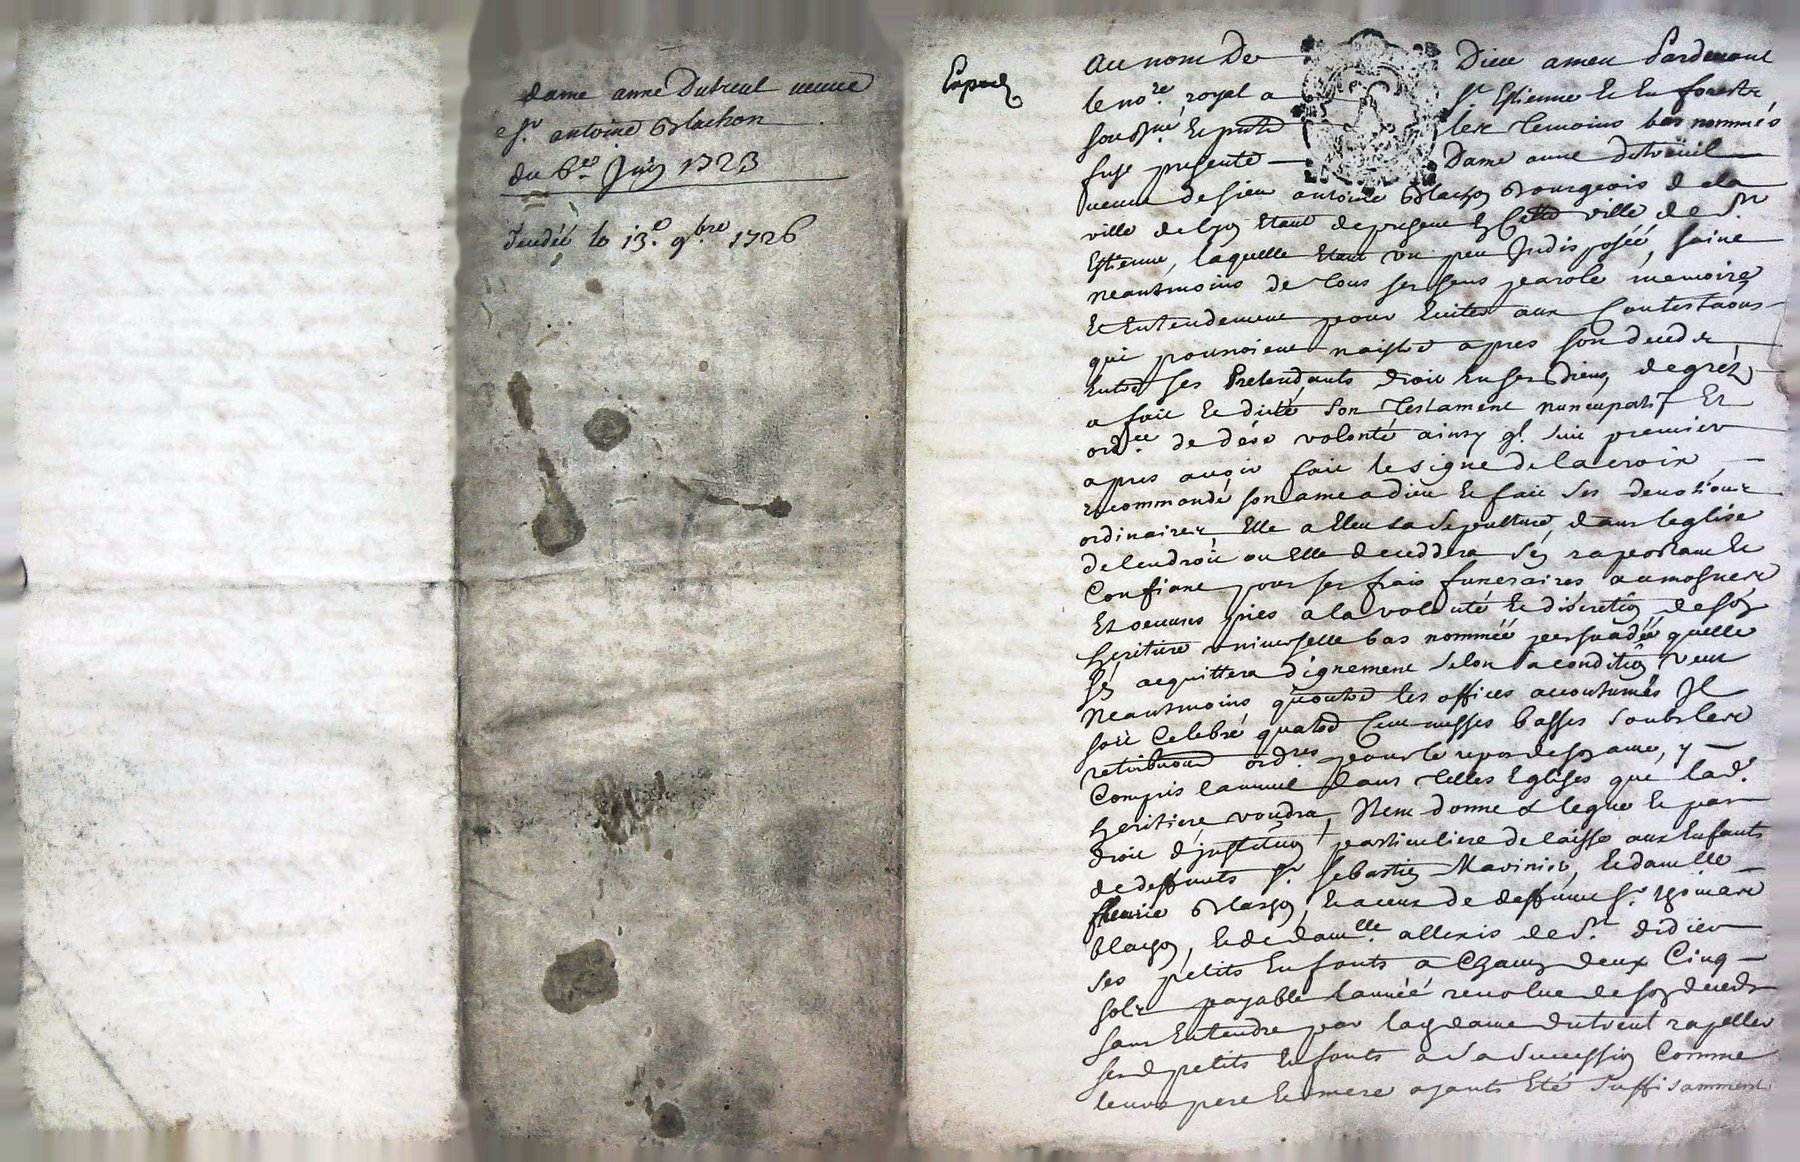 dame anne Dutreul veuve
Sr. antoine Blachon
du 6e. Juin 1723
le 13e. 9bre 1726
Exped
Au nom De Dieu amen Pardevant
le nore. royal a St Estienne Et En forestz
sousné. Et presentz les Temoins bas nommés
fust presente Dame anne dutreuil
veuve de sieur antoine Blachon Bourgeois de la
ville de Lyon Etant de present En Cette ville de St
Estienne, laquelle Etant un peu Indisposéé, saine
neantmoins de tous ses sens parole memoire
Et Entendement pour Eviter aux Contestaons
qui pourroient naistre apres son decedz
Entre ses Pretendants droit En ses biens, de gréz
a fait Et dicté son Testament nuncupatif Et
de volonté ainsy q. suit premier
apres avoir fait le signe de la croix
recommandé son ame a dieu Et fait ses devotions
ordinaires, Elle a Eleu sa sepulture dans leglise
de lendroit ou Elle deceddera s'en raportant Et
Confiant pour ses frais funeraires aumosnes
Et oeuvres pies a la volonté Et discretion de son
heritiere universelle bas nomméé persuadéé quelle
s'en acquittera dignement selon sa condition veut
Neantmoins quoutre les offices accoutumés Il
soit Celebré quatre Cent messes basses soubs les
retributions ordres pour le repos de son ame, y
Compris lannuel dans telles Eglises que lad.
heritiere voudra, Item donne & legue Et par
droit d'jnstitution particuliere delaisse aux Enfants
de deffunts Sr. Sebastien Mavinier, Et damelle
fleurie Blachon, Et a ceux de deffunt Sr. thomas
blachon, Et de damlle. allexis de St didier
ses petits Enfants a Chacun deux Cinq
solz payable lannéé revolue de son decedz
sans Entendre par lad dame dutreul rapeller
sesd petits Enfants a sa succession Comme
leurs pere Et mere ayants Eté suffisamment